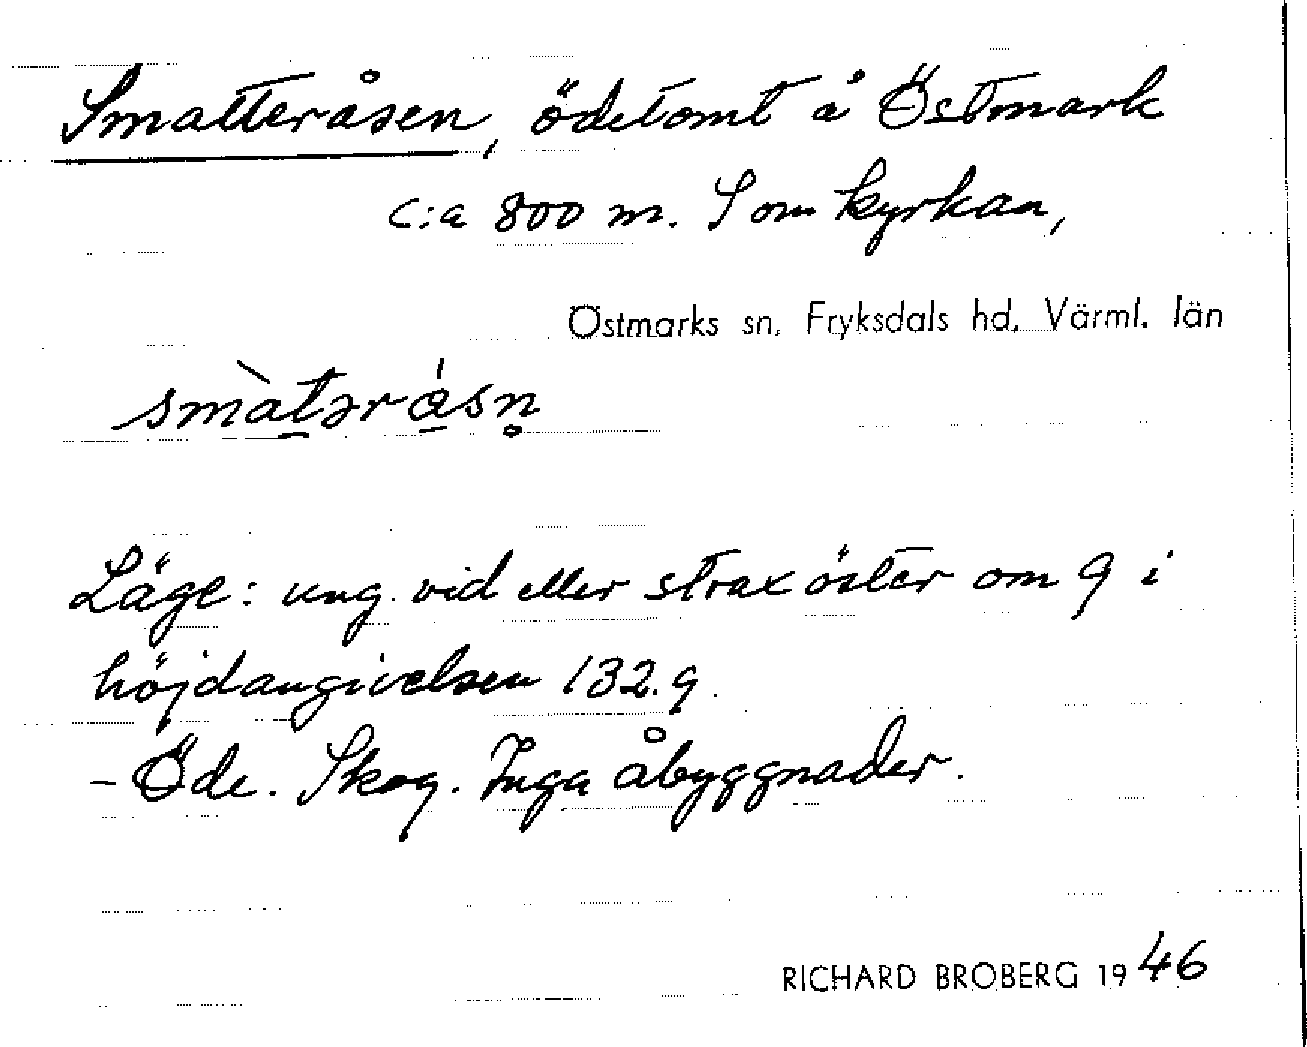 Smatteråsen, ödetomt å Östmark
c:a 800 m. S om kyrkan,
Östmarks sn, Fryksdals hd, Värml. län
smàtəråsn̥
Läge: ung. vid eller strax öster om 9 i
höjdangivelsen 132.9.
- Öde. Skog. Inga åbyggnader.
RICHARD BROBERG 1946